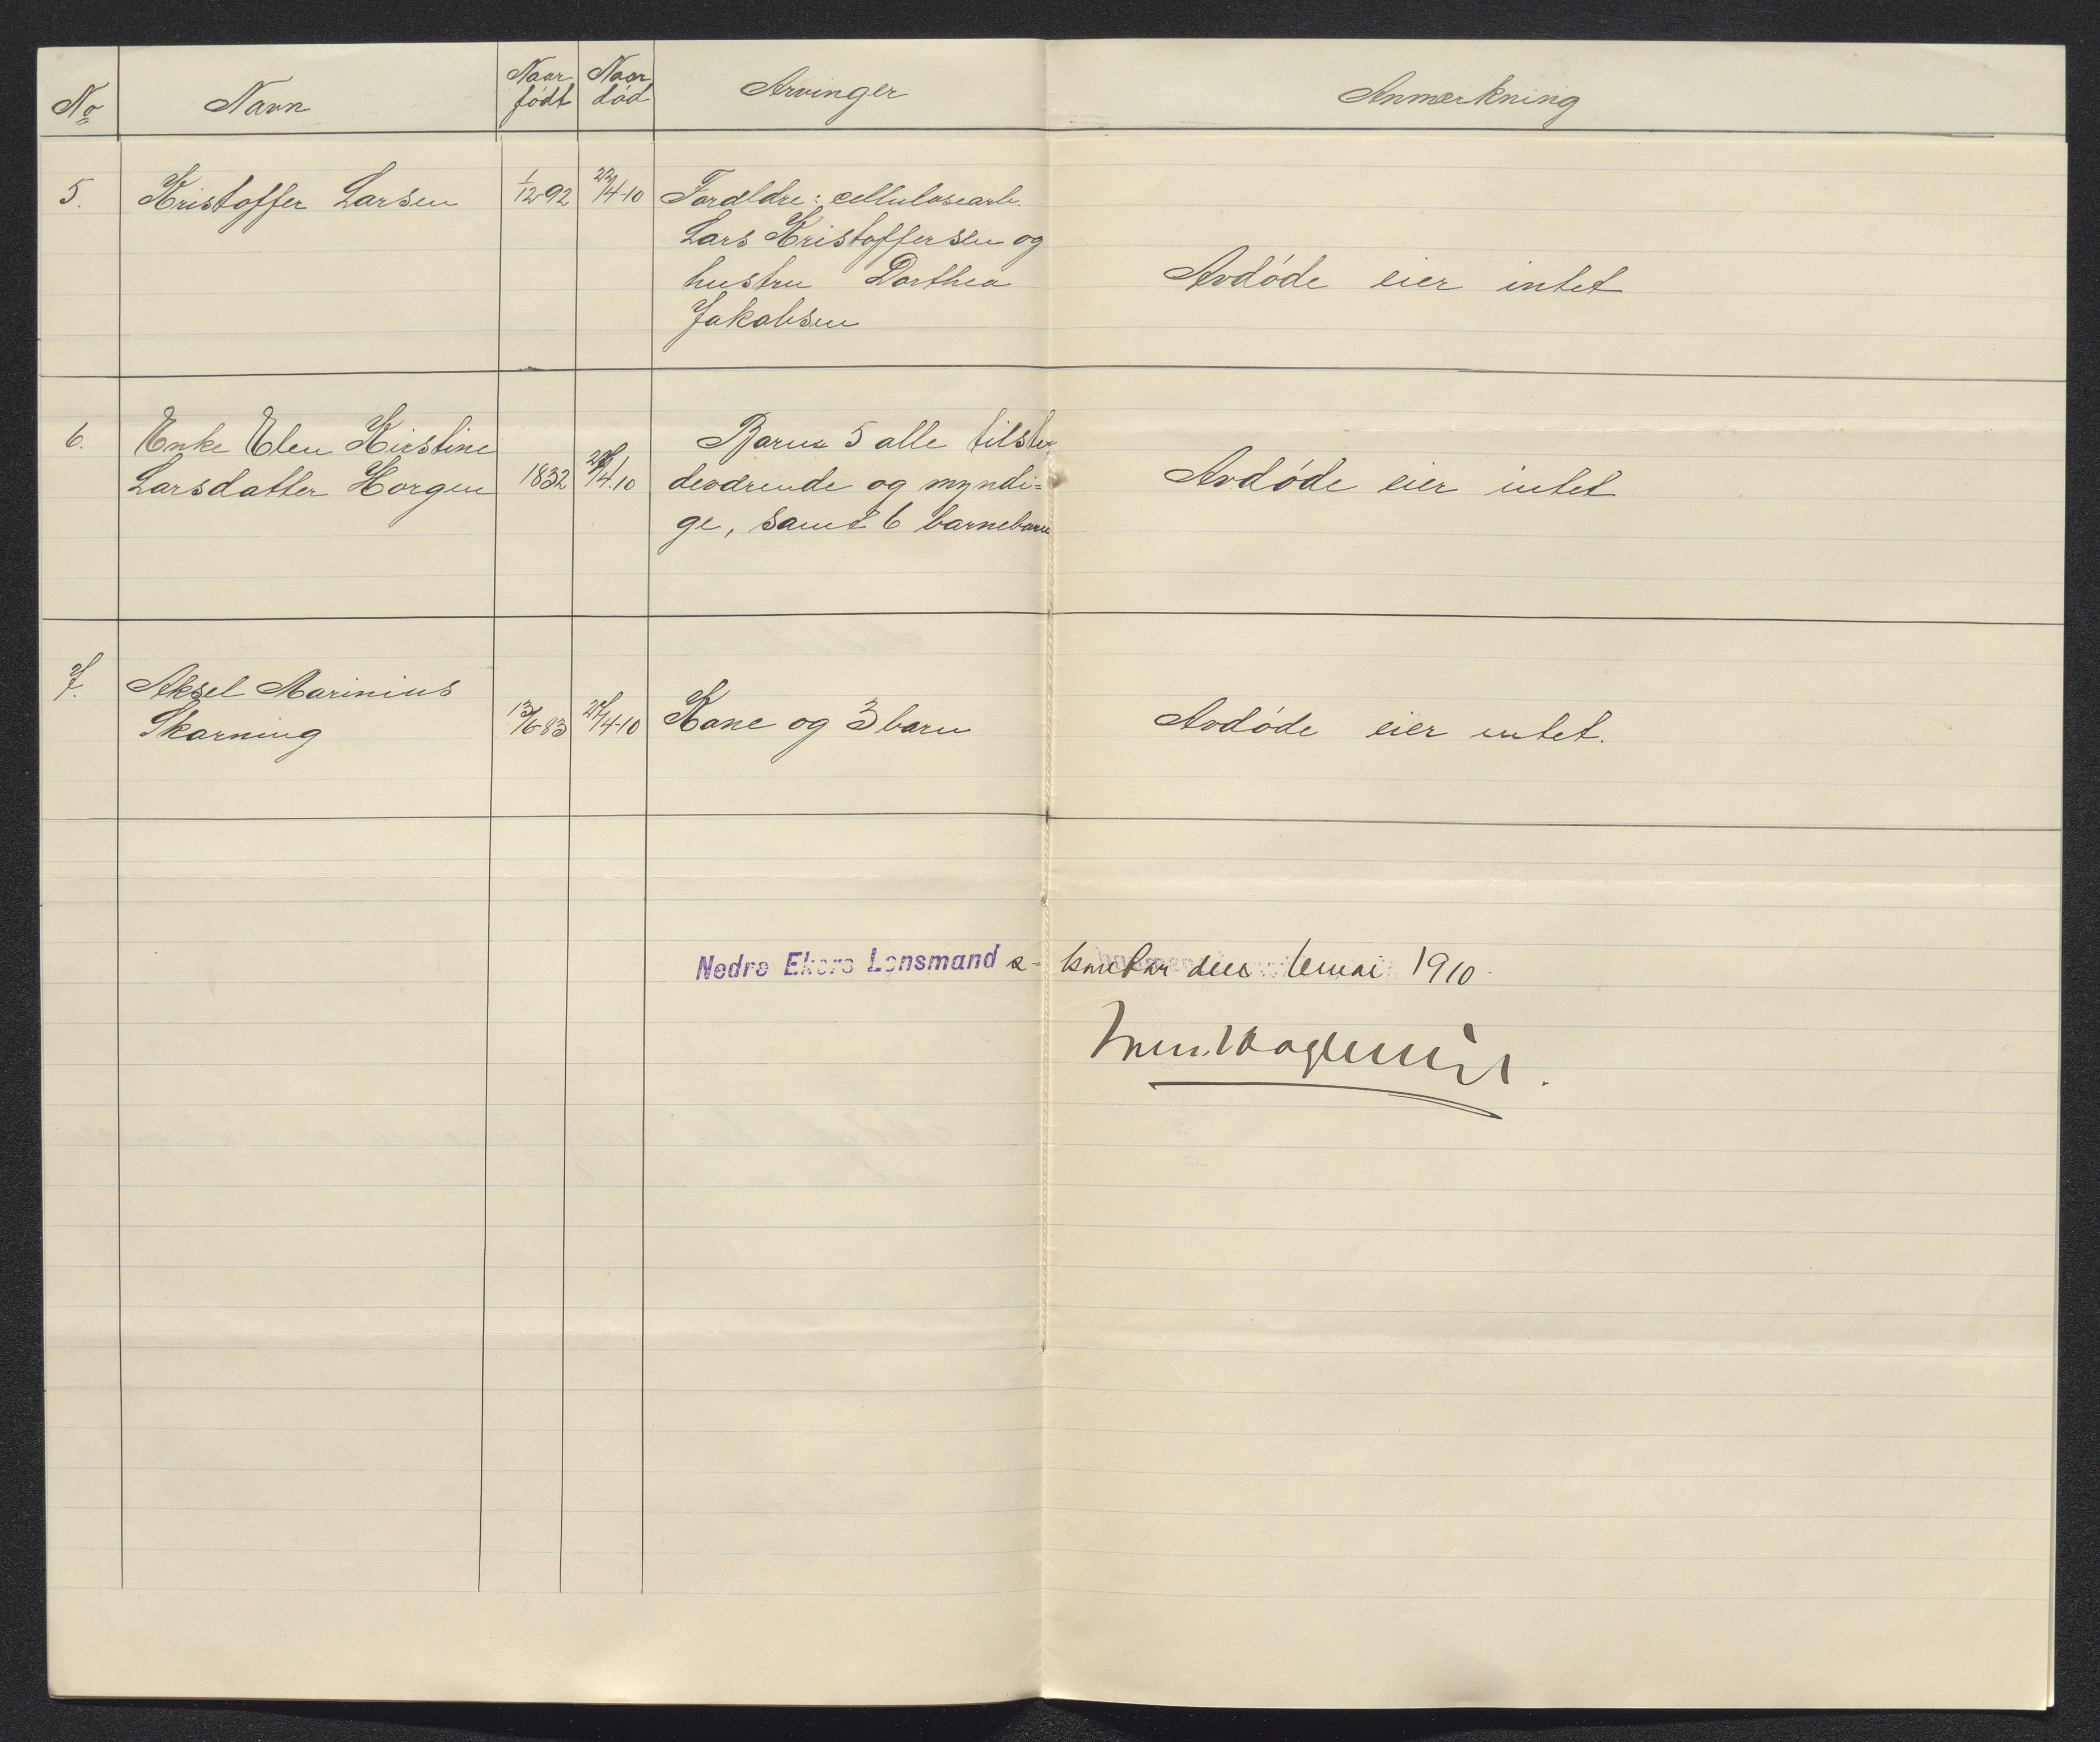 No Navn Naar født Naar død Arvinger Anmerkning
5. Kristoffer Larsen 1/12-92 22/4-10 Forældre: cellulosearb.
Lars Kristoffersen og
hustru Dorthea
Jakobsen
Avdøde eier intet
6. Enke Elen Kirstine
Larsdatter Horgen 1832 /4.10
Barn 5 alle tilste
deværende og myndi=
ge, samt 6 barnebarn
Avdøde eier intet
7. Aksel Marinius
Skarning 13/6-83 /4-10 Kone og 3 barn
Avdøde eier intet.
Nedre Ekers Lensmand s-kontor den 6 mai 1910.